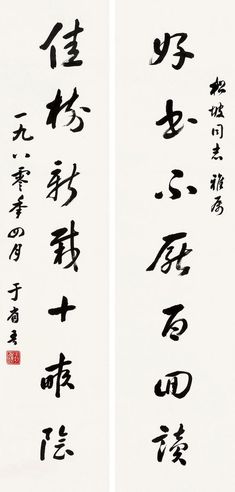 松坡同志雅属
好書不厭百回讀
佳樹新栽十畝陰
一九八零年四月 于省吾